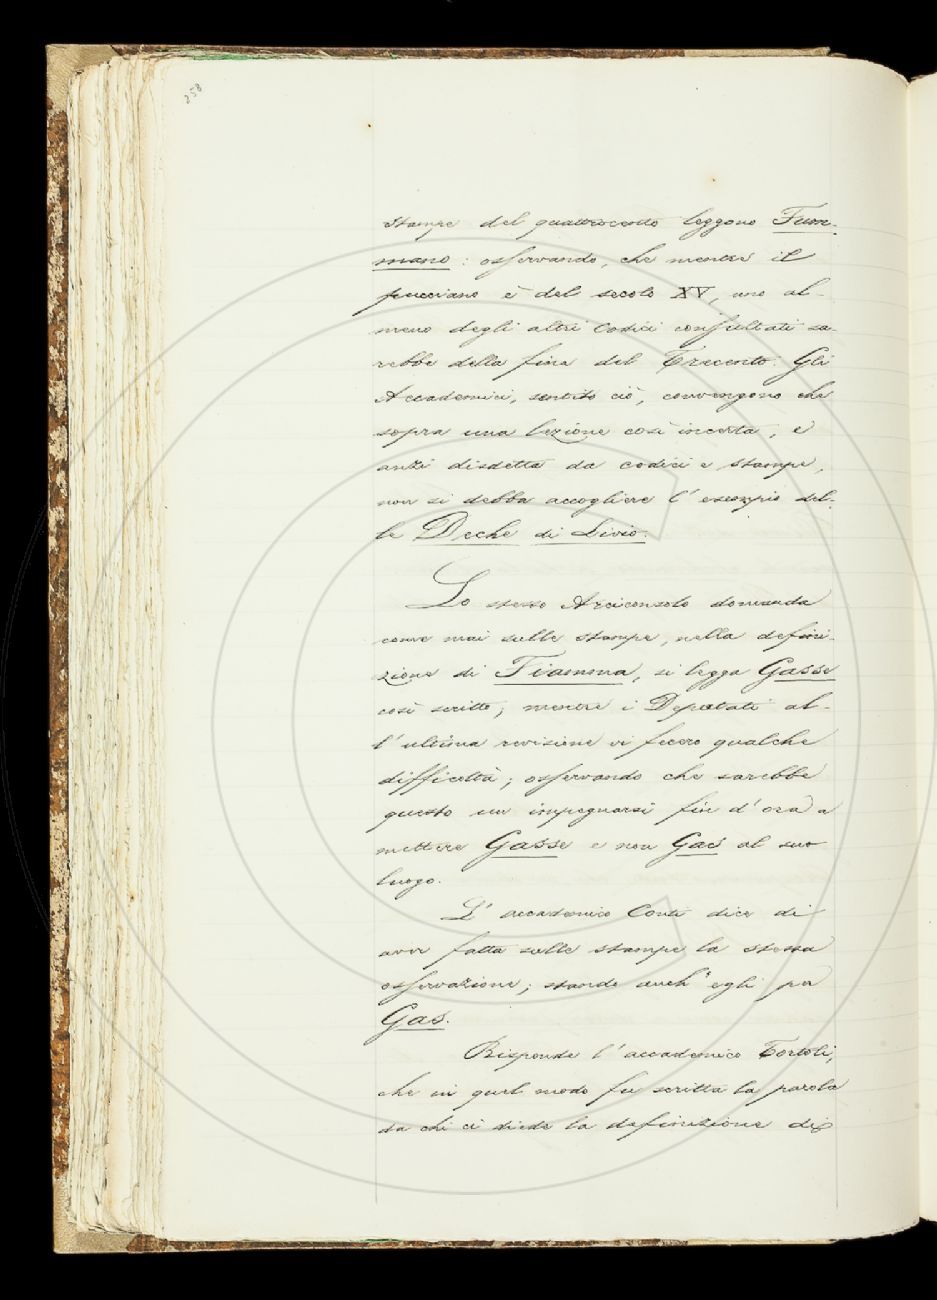 258
stampe del quattrocento leggono Fum-
mano: osservando, che mentre il
pucciano è del secolo XV, uno al-
meno degli altri Codici consultati sa-
rebbe della fine del Trecento. Gli
Accademici, sentito ciò, convengono che
sopra una lezione così incerta, e
anzi disdetta da codici e stampe,
non si debba accogliere l'esempio del-
le Deche di Livio.
Lo stesso Arciconsolo domanda
come mai sulle stampe, nella defini-
zione di Fiamma, si legga Gasse
così scritto; mentre i Deputati al-
l'ultima revisione vi fecero qualche
difficoltà; osservando che sarebbe
questo un impegnarsi fin d'ora a
mettere Gasse e non Gas al suo
luogo.
L'accademico Conti dice di
aver fatta sulle stampe la stessa
osservazione; stando anch'egli per
Gas.
Risponde l'accademico Tortoli,
che in quel modo fu scritta la parola
da chi ci diede la definizione di